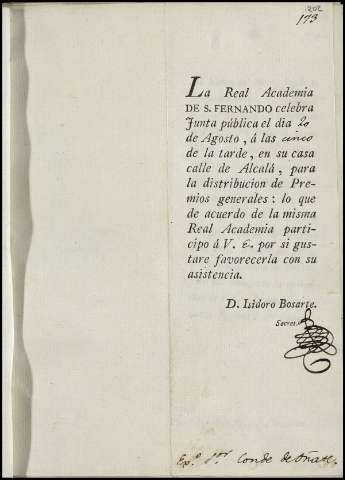 202
173
La Real Academia
DE S. FERNANDO celebra
Junta pública el dia 20
de Agosto, á las cinco
de la tarde, en su casa
calle de Alcalá, para
la distribucion de Pre-
mios generales: lo que
de acuerdo de la misma
Real Academia parti-
cipo á V. E. por si gus-
tare favorecerla con su
asistencia.
D. Isidoro Bosarte.
Secret.
Exc. Sor. Conde de Oñate.